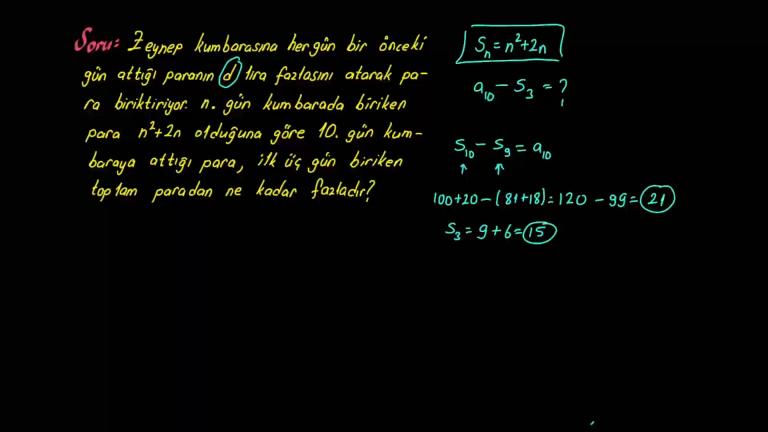 Soru: Zeynep kumbarasına her gün bir önceki
gün attığı paranın d lira fazlasını atarak pa-
ra biriktiriyor. n. gün kumbarada biriken
para n²+2n olduğuna göre 10. gün kum-
baraya attığı para, ilk üç gün biriken
toplam paradan ne kadar fazladır?
Sₙ = n²+2n
a₁₀ - S₃ = ?
S₁₀ - S₉ = a₁₀
100+20 - (81+18) = 120 - 99 = 21
S₃ = 9+6 = 15